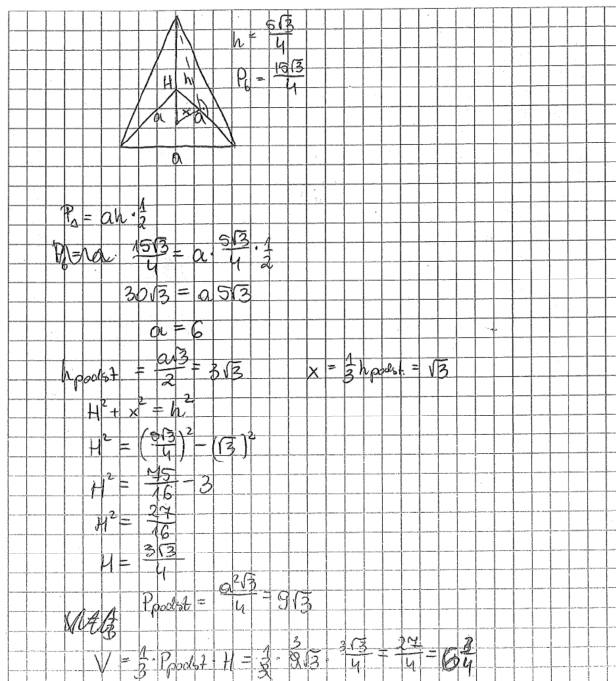 h = 5√3/4
P_b = 15√3/4
H h
a x a
a
P_Δ = ah · 1/2
15√3/4 = a · 5√3/4 · 1/2
30√3 = a 5√3
a = 6
h_podst = a√3/2 = 3√3 x = 1/3 h_podst. = √3
H² + x² = h²
H² = (5√3/4)² - (√3)²
H² = 75/16 - 3
H² = 27/16
H = 3√3/4
P_podst = a²√3/4 = 9√3
V = 1/3 · P_podst · H = 1/3 · 9√3 · 3√3/4 = 27/4 = 6 3/4